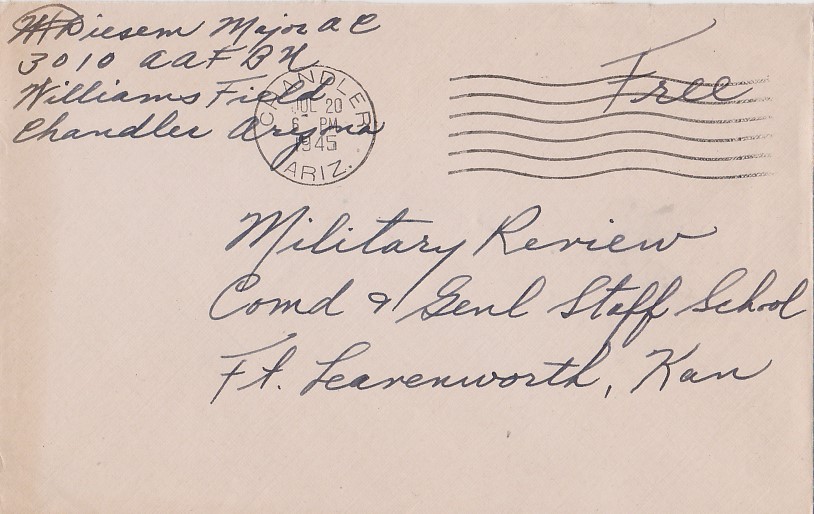 Diesem Major A C
3010 AAF BU
Williams Field
Chandler Arizona
CHANDLER
JUL 20
6 PM
1945
ARIZ.
Free
Military Review
Comd & Genl Staff School
Ft. Leavenworth, Kan